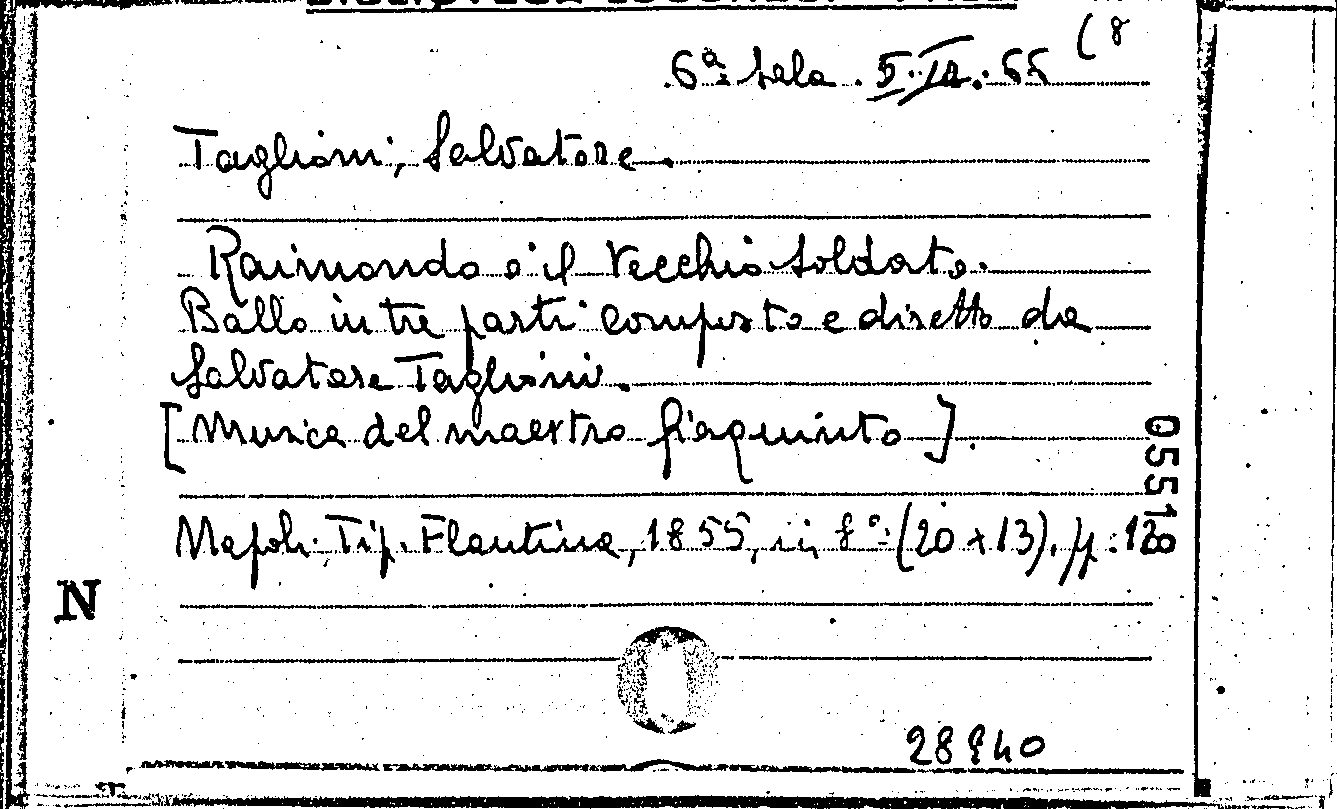 6ª Sala. 5.IX.66 (8
Taglioni, Salvatore.
Raimondo o il Vecchio soldato.
Ballo in tre parti composto e diretto da
Salvatore Taglioni.
[Musica del maestro Giaquinto].
Napoli. Tip. Flautina, 1855, in 8º (20 x 13). p. 12
0551
N
28840